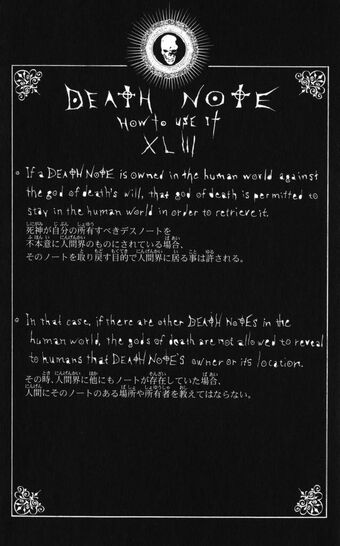 DEATH NOTE
HOW TO USE IT
XLIII
If a DEATH NOTE is owned in the human world against
the god of death's will, that god of death is permitted to
stay in the human world in order to retrieve it.
死神が自分の所有すべきデスノートを
不本意に人間界のものにされている場合、
そのノートを取り戻す目的で人間界に居る事は許される。
In that case, if there are other DEATH NOTEs in the
human world, the gods of death are not allowed to reveal
to humans that DEATH NOTE'S owner or its location.
その時、人間界に他にもノートが存在していた場合、
人間にそのノートのある場所や所有者を教えてはならない。